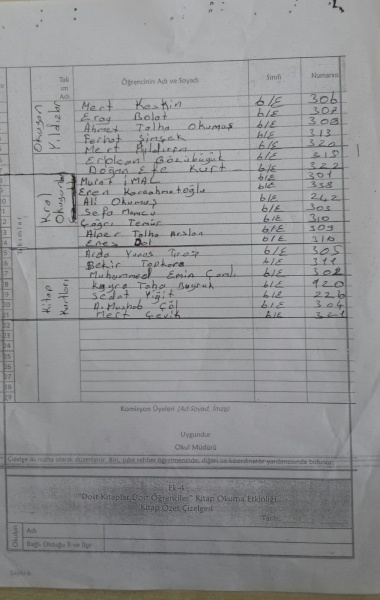 Takım Adı Öğrencinin Adı ve Soyadı Sınıfı Numarası
Okuyan Yıldızlar
Mert Keskin 6/E 306
Eray Bolat 6/E 302
Ahmet Talha Okumuş 6/E 308
Ferhat Şimşek 6/E 313
Mert Yıldırım 6/E 320
Erolcan Gözübüyük 6/E 315
Doğan Efe Kurt 6/E 322
Kral Okuyanlar
Murat İMAL 6/E 301
Eren Karaahmetoğlu 6/E 338
Ali Okumuş 6/E 242
Sefa Mamcu 6/E 303
Çağrı Temür 6/E 310
Alper Talha Arslan 6/E 309
Enes Dal 6/E 316
Kitap Kurtları
Arda Yunus 6/E 305
Bekir Tankara 6/E 311
Muhammed Emin Çamlı 6/E 302
Kayra Taha Buyruk 6/E 920
Sedat Yiğit 6/E 226
A. Çöl 6/E 304
Mert Çevik 6/E
Komisyon Üyeleri (Ad Soyad, İmza)
Uygundur
Okul Müdürü
Çizelge iki nüsha olarak düzenlenir. Biri, sube rehber öğretmeninde, diğeri ise koordinatör yardımcısında bulunur.
Ek-4
"Dost Kitaplar Dost Öğrenciler" Kitap Okuma Etkinliği
Kitap Özet Çizelgesi
Tarih:
Okulun
Adı
Bağlı Olduğu İl ve İlçe
Sayfa